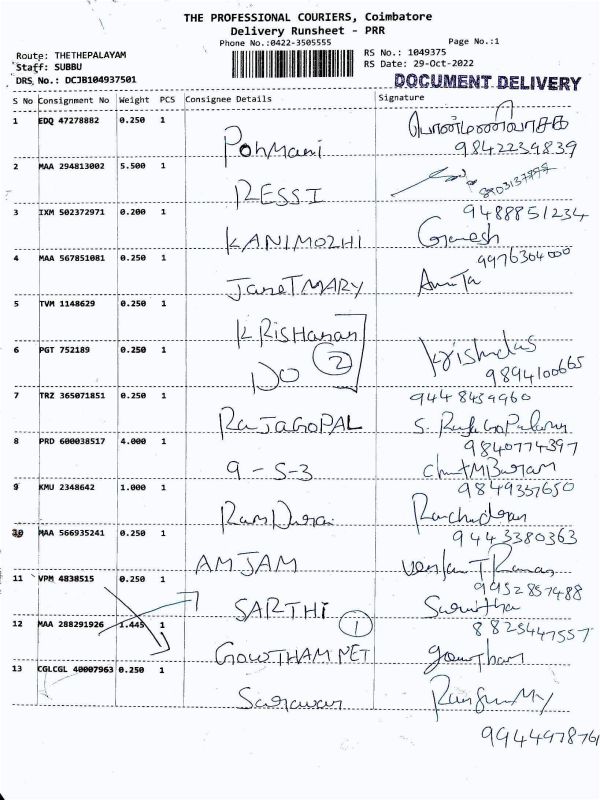 THE PROFESSIONAL COURIERS, Coimbatore
Delivery Runsheet - PRR
Phone No.:0422-3505555
Page No.:1
Route: THETHEPALAYAM
RS No.: 1049375
Staff: SUBBU
RS Date: 29-Oct-2022
DRS, No.: DCJB104937501
DOCUMENT DELIVERY
S No Consignment No Weight PCS Consignee Details Signature
1 EDQ 47278882 0.250 1 Ponmani பொன்மணிவாசக
9842239839
2 MAA 294813002 5.500 1 RESSI
3 IXM 502372971 0.200 1 KANIMOZHI 9488851234
Ganesh
4 MAA 567851081 0.250 1 JanetMARY 9976304000
Anita
5 TVM 1148629 0.250 1 KRisHanan
6 PGT 752189 0.250 1 DO 2 Krishndas
9894100665
7 TRZ 365071851 0.250 1 RaJAGOPAL 9448459960
8 PRD 600038517 4.000 1 9-S-3 9840774397
9 KMU 2348642 1.000 1 Ram Durai 9849357650
10 MAA 566935241 0.250 1 AMJAM 9443380363
11 VPM 4838515 0.250 1 SARTHI 9952857488
12 MAA 288291926 1.445 1 GOWTHAM NET 1 8825447557
Gowtham
13 CGLCGL 40007963 0.250 1 Saravanan